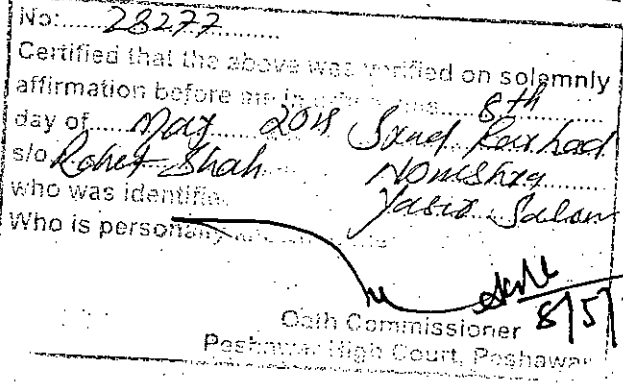 No:.....28277..........
Certified that the above was verified on solemnly
affirmation before me in office this......8th
day of.....May.....2018 Syed
s/o Shah
who was identified Yasir Salam
Who is personally
8/5/
Oath Commissioner
Peshawar High Court, Peshawar